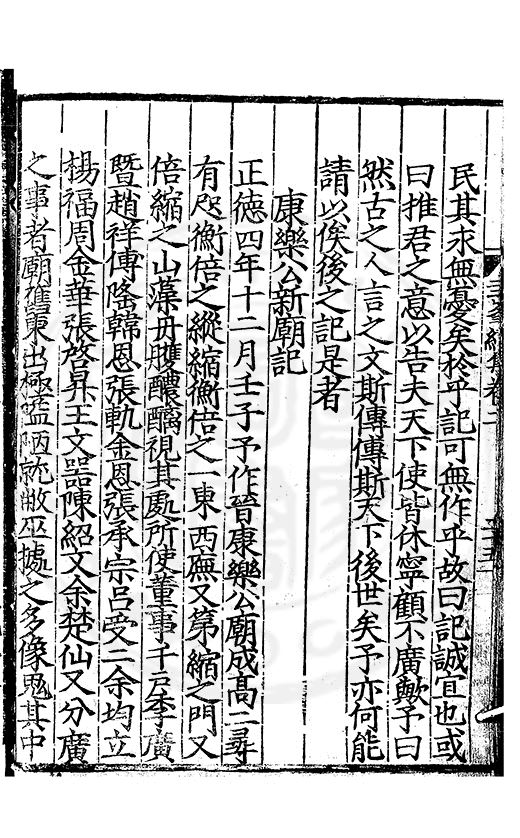 民其求無憂矣於乎記可無作乎故曰記誠宜也或
曰推君之意以告夫天下使皆休寧顧不廣歟予曰
然古之人言之文斯傳傳斯天下後世矣予亦何能
請以俟後之記是者
康樂公新廟記
正德四年十二月壬子予作晉康樂公廟成高二尋
有咫衡倍之縱縮衡倍之一東西廡又第縮之門又
倍縮之山藻丹雘醲醨視其處所使董事千戸李廣
暨趙祥傅隆韓恩張軌金恩張承宗呂受二余均立
楊福周金華張啓昇王文器陳紹文余楚仙又分廣
之事者廟舊東出極嗑陋就敝巫據之多像鬼其中